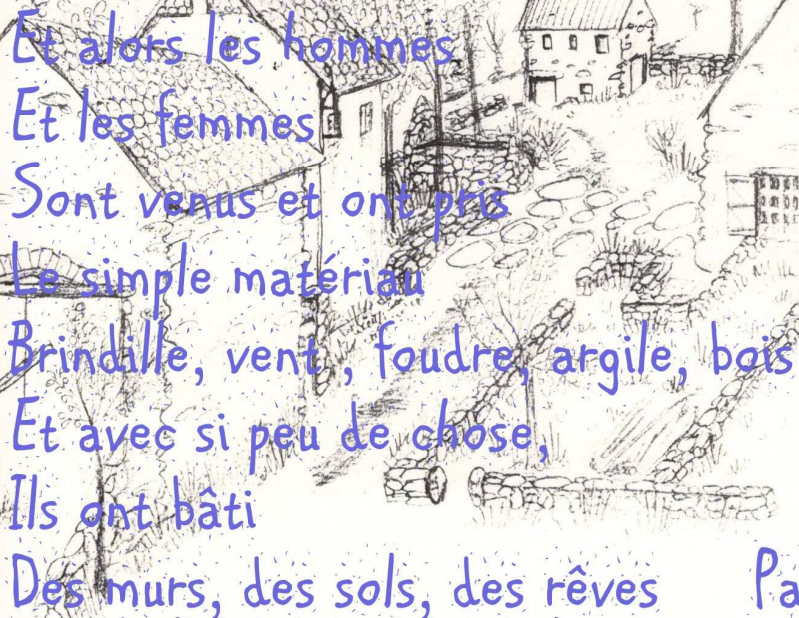 Et alors les hommes
Et les femmes
Sont venus et ont pris
Le simple matériau
Brindille, vent , foudre, argile, bois
Et avec si peu de chose,
Ils ont bâti
Des murs, des sols, des rêves
Pa